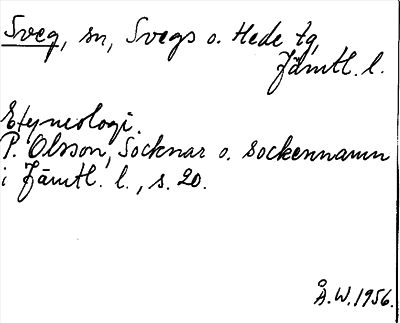 Sveg, sn, Svegs o. Hede tg
Jämtl. l.
Etymologi.
P. Olsson, Socknar o. sockennamn
i Jämtl. l., s. 20.
Å.W. 1956.